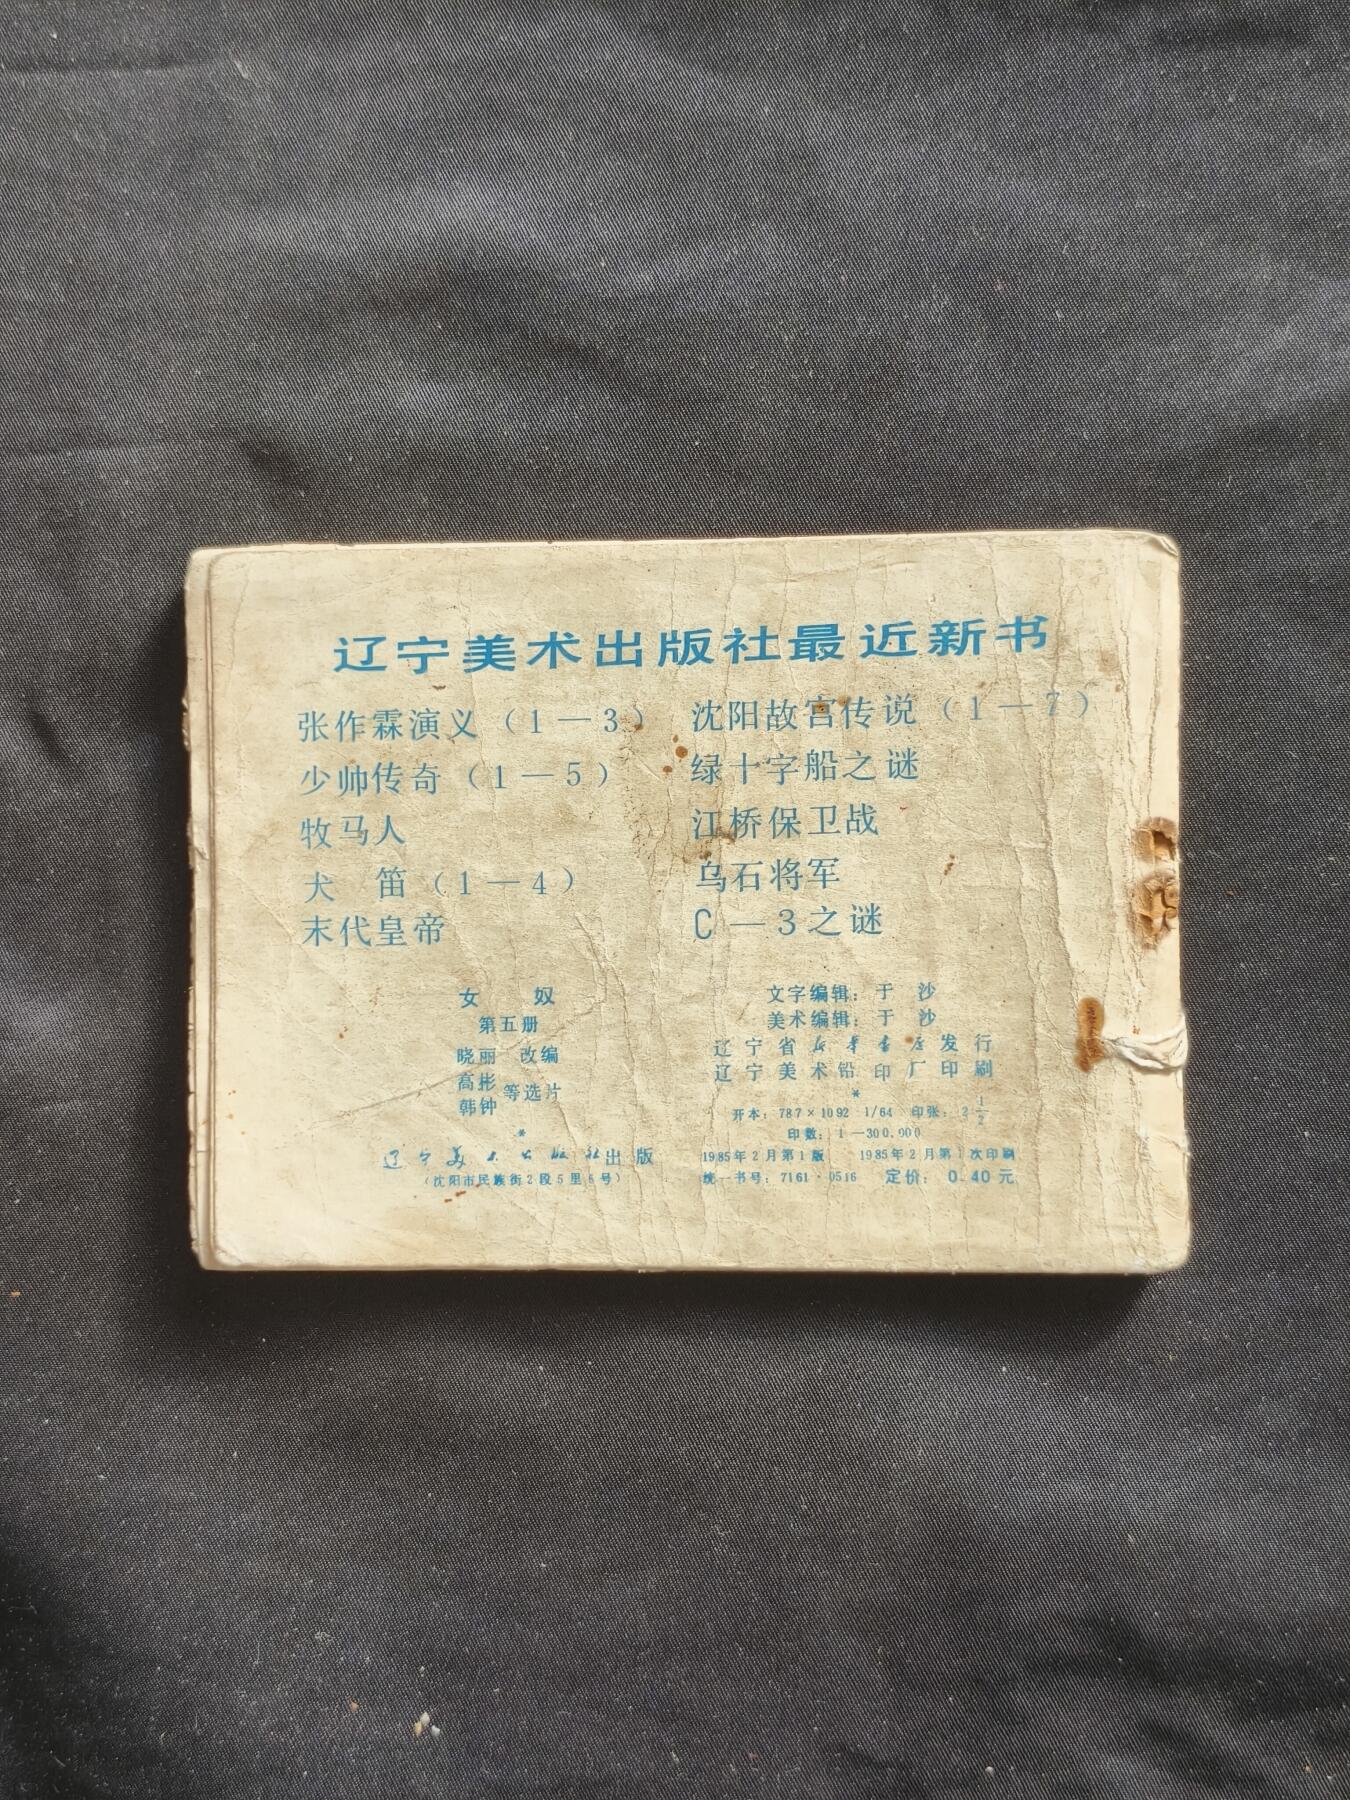 辽宁美术出版社最近新书
张作霖演义（1—3）
少帅传奇（1—5）
牧马人
犬　笛（1—4）
末代皇帝
沈阳故宫传说（1—7）
绿十字船之谜
江桥保卫战
乌石将军
C—3之谜
女　奴
第五册
晓丽　改编
高彬
韩钟 等选片
*
辽宁美术出版社出版
（沈阳市民族街2段5里6号）
文字编辑：于　沙
美术编辑：于　沙
辽宁省新华书店发行
辽宁美术铅印厂印刷
*
开本：787×1092　1/64　印张：2 1/2
印数：1—300,000
1985年2月第1版　1985年2月第1次印刷
统一书号：7161·0516　定价：0.40元